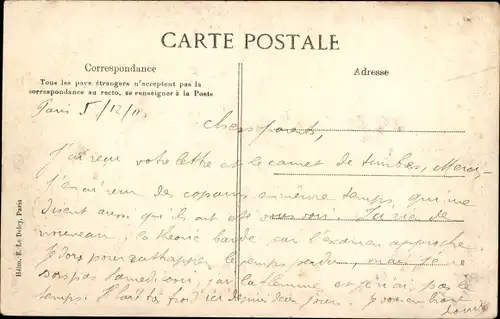 CARTE POSTALE
Correspondance
Adresse
Tous les pays étrangers n'acceptent pas la
correspondance au recto, se renseigner à la Poste
Paris 5/12/11
Chers parents,
J'ai reçu votre lettre et le carnet de timbres, Merci
J'en ai reçu des copains en même temps, qui me
disent aussi qu'ils ont été vous voir. J'ai rien de
nouveau, la théorie barde, car l'examen approche.
Je dors pour rattraper le temps perdu, mais je ne
sors pas samedi soir, car la flemme, et je n'ai pas le
temps. Il fait très froid ici depuis deux jours. Je vous embrasse
Louis
Hélio. E. Le Deley, Paris